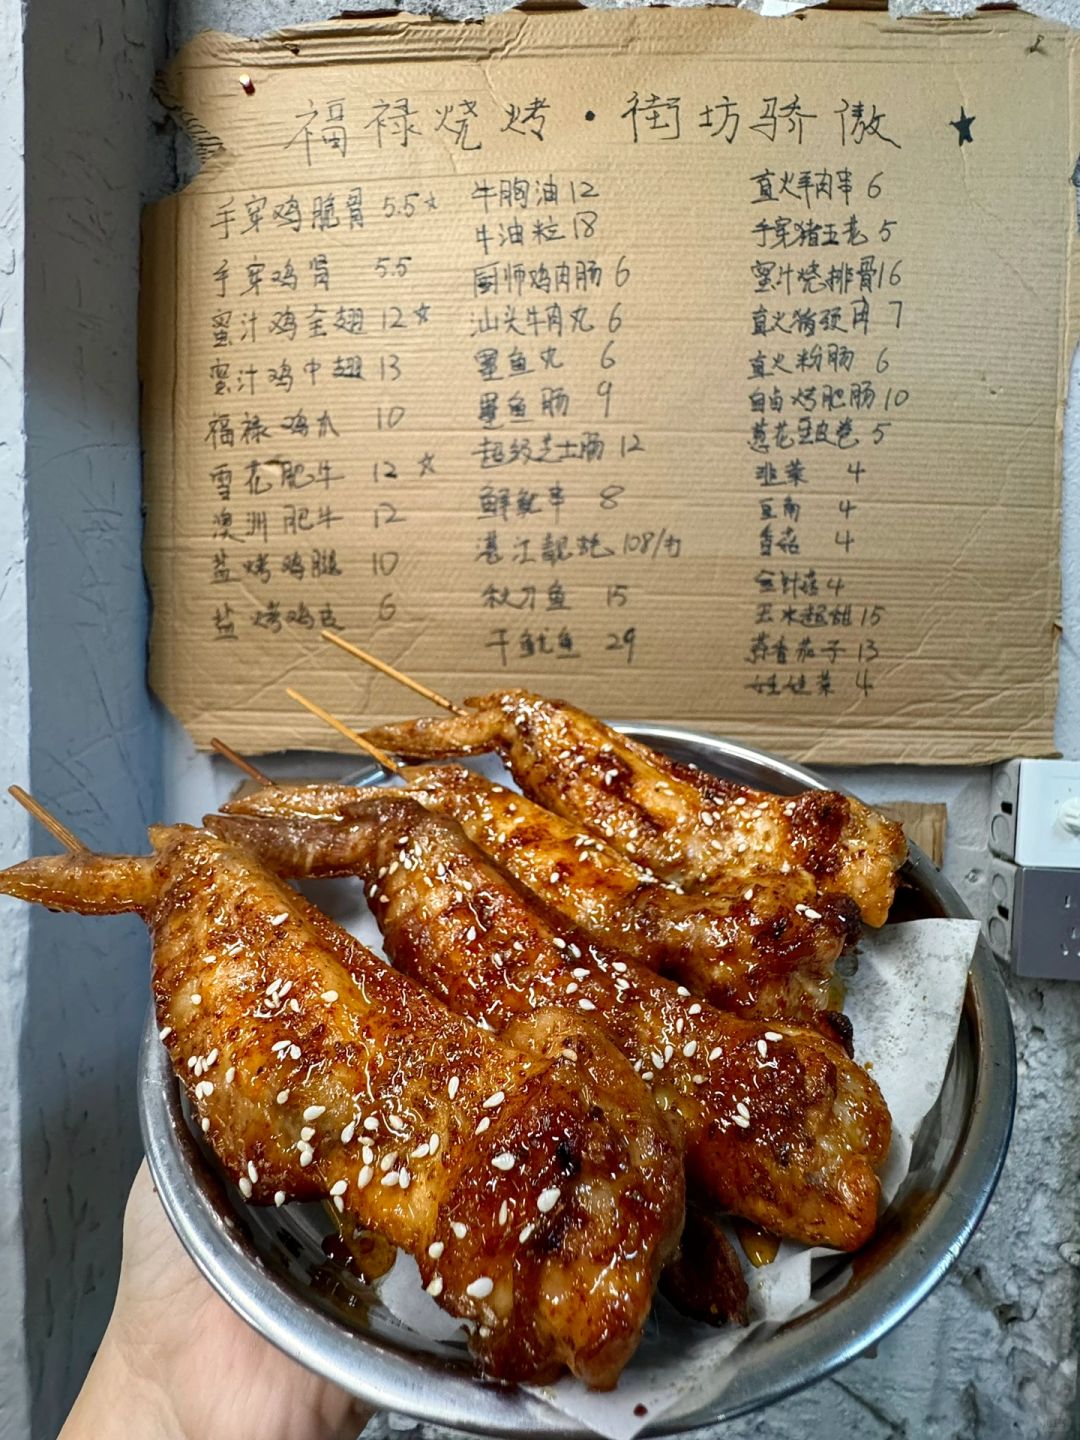 福禄烧烤·街坊骄傲 ★
手穿鸡脆骨 5.5☆
手穿鸡肾 5.5
蜜汁鸡全翅 12☆
蜜汁鸡中翅 13
福禄鸡爪 10
雪花肥牛 12☆
澳洲肥牛 12
盐烤鸡腿 10
盐烤鸡皮 6
牛胸油 12
牛油粒 18
厨师鸡肉肠 6
汕头牛肉丸 6
墨鱼丸 6
墨鱼肠 9
超级芝士肠 12
鲜鱿串 8
湛江靓蚝 108/打
秋刀鱼 15
干鱿鱼 29
直火羊肉串 6
手穿猪五花 5
蜜汁烧排骨 16
直火猪颈肉 7
直火粉肠 6
自卤烤肥肠 10
葱花豆皮卷 5
韭菜 4
豆角 4
香菇 4
金针菇 4
玉米超甜 15
蒜香茄子 13
娃娃菜 4